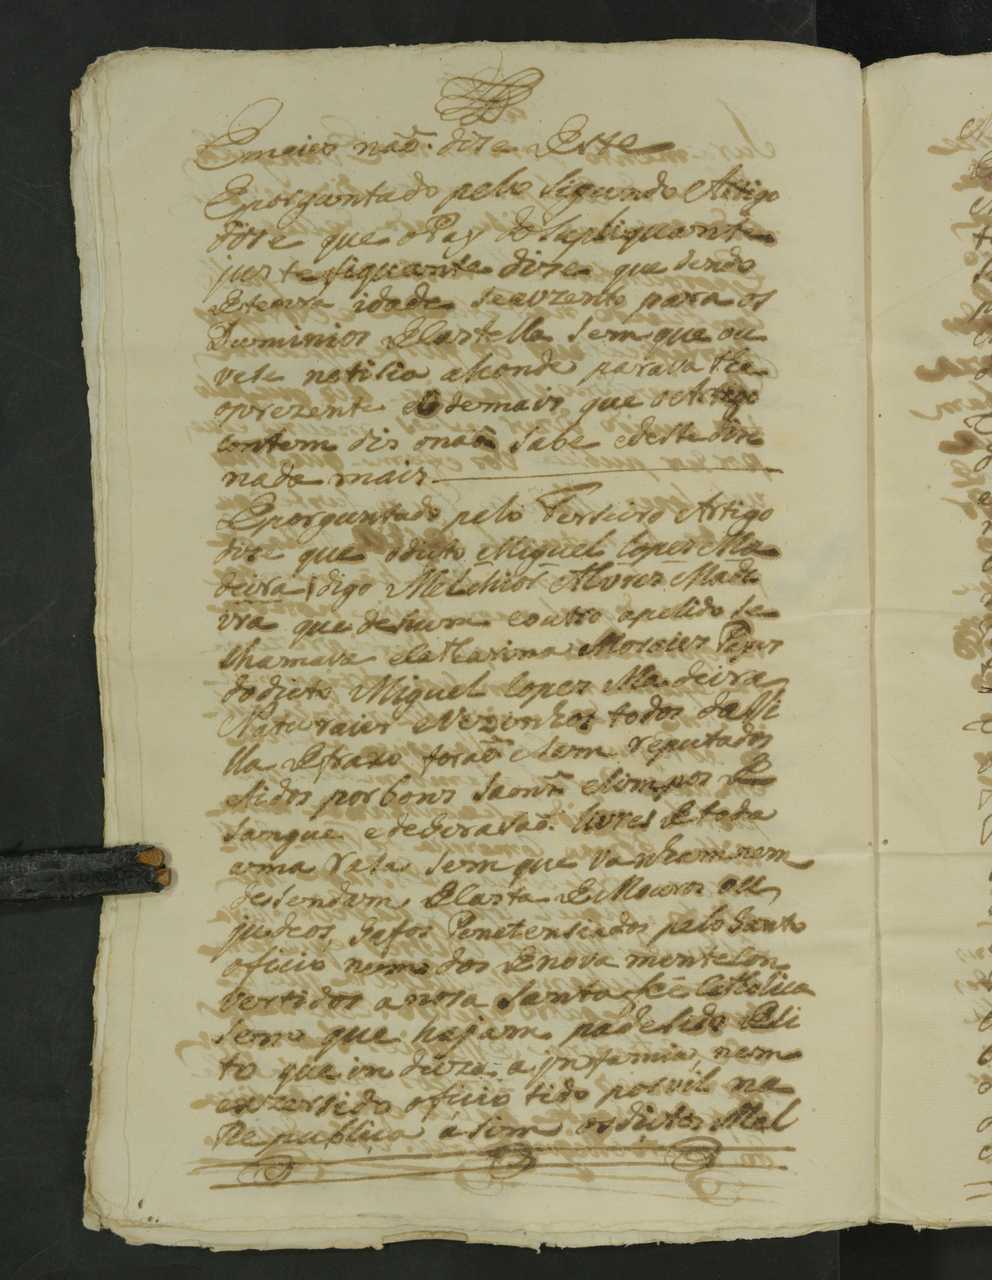 Emaies naõ. dise Este
Eporguntado pelo Sigundo Artigo
dise que o Pay do Supliquante
justefiquante dise que sendo
Etenra idade seauzento para os
Duminios Elastella sem que ou
vese notisia ahonde parava the
oprezente e o demais que o Artigo
contem dis onaõ sabe edeste dise
nada mais
Eporguntado pelo Terseiro Artigo
dise que odicto Miguel lopes Ma
deira digo Melchior Alvres Madei
ra que dehum eoutro apelido se
chamava eCatharina Moraies Pays
dodicto Miguel lopes Madeira
Naturaies eVezinhos todos da Vi
lla Efraxo foraõ esam reputados
etidos porbons saons elimpos E
sangue ededirasaõ. livres Etoda
arma rasa sem que venham nem
desendam Elasta EMouros ou
judeos, Gafos Penetensiados pelo Santo
oficio nem dos Enova mente Con
vertidos anosa Santa fée Catholica
sem que hajam padesido Eli
to que induza a jnfamia nem
exzersido oficio tido por vil na
Republica ásim osdictos Mel